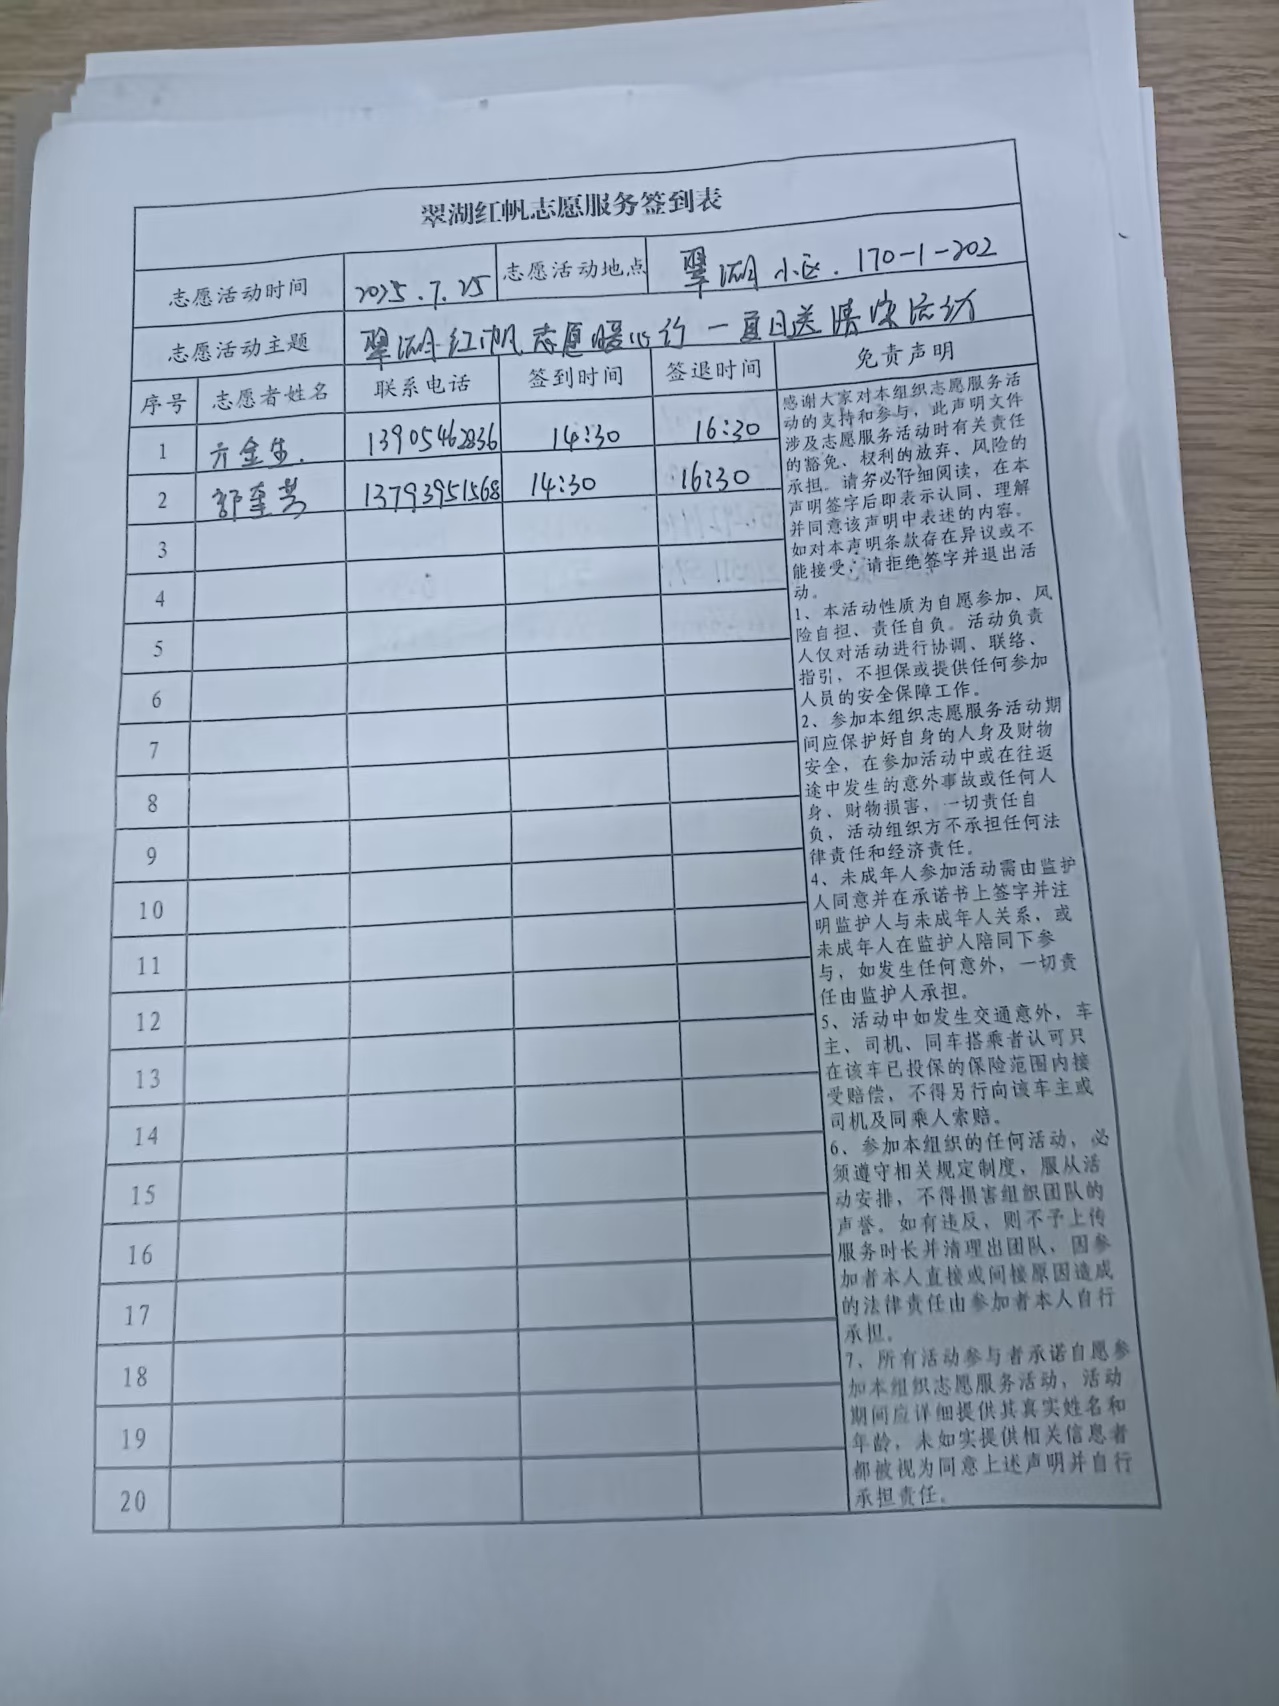 翠湖红帆志愿服务签到表
志愿活动时间 2025.7.25 志愿活动地点 翠湖小区.170-1-202
志愿活动主题 翠湖红帆志愿暖心行一夏日送清凉活动
序号 志愿者姓名 联系电话 签到时间 签退时间 免责声明
1 亓金生. 13905462836 14:30 16:30
2 13793951568 14:30 16:30
3
4
5
6
7
8
9
10
11
12
13
14
15
16
17
18
19
20
感谢大家对本组织志愿服务活
动的支持和参与,此声明文件
涉及志愿服务活动时有关责任
的豁免、权利的放弃、风险的
承担。请务必仔细阅读,在本
声明签字后即表示认同、理解
并同意该声明中表述的内容。
如对本声明条款存在异议或不
能接受,请拒绝签字并退出活
动。
1、本活动性质为自愿参加、风
险自担、责任自负。活动负责
人仅对活动进行协调、联络、
指引,不担保或提供任何参加
人员的安全保障工作。
2、参加本组织志愿服务活动期
间应保护好自身的人身及财物
安全,在参加活动中或在往返
途中发生的意外事故或任何人
身、财物损害,一切责任自
负,活动组织方不承担任何法
律责任和经济责任。
4、未成年人参加活动需由监护
人同意并在承诺书上签字并注
明监护人与未成年人关系,或
未成年人在监护人陪同下参
与,如发生任何意外,一切责
任由监护人承担。
5、活动中如发生交通意外,车
主、司机、同车搭乘者认可只
在该车已投保的保险范围内接
受赔偿,不得另行向该车主或
司机及同乘人索赔。
6、参加本组织的任何活动,必
须遵守相关规定制度,服从活
动安排,不得损害组织团队的
声誉。如有违反,则不予上传
服务时长并清理出团队,因参
加者本人直接或间接原因造成
的法律责任由参加者本人自行
承担。
7、所有活动参与者承诺自愿参
加本组织志愿服务活动,活动
期间应详细提供其真实姓名和
年龄,未如实提供相关信息者
都被视为同意上述声明并自行
承担责任。